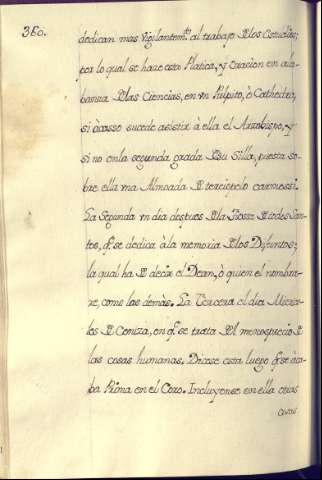 380.
dedican mas vigilantemte. al trabajo de los Estudios;
por lo qual se haze esta Platica, y Oracion en ala-
banza de las Ciencias, en vn Pulpito, ò Cathedra,
si àcasso sucede asistir à ella el Arzobispo, y
si no en la segunda grada de su Silla, puesta so-
bre ella vna Almoada de terciopelo carmessi.
La Segunda vn dia despues de la Fiesta de todos San-
tos, q. se dedica à la memoria de los Difuntos;
la qual ha de decir el Dean, ò quien el nombra-
re, como las demàs. La Tercera el dia Mierco-
les de Ceniza, en q. se trata del menosprecio de
las cosas humanas. Dicese esta luego q. se aca-
ba Prima en el Coro. Incluyense en ella otras